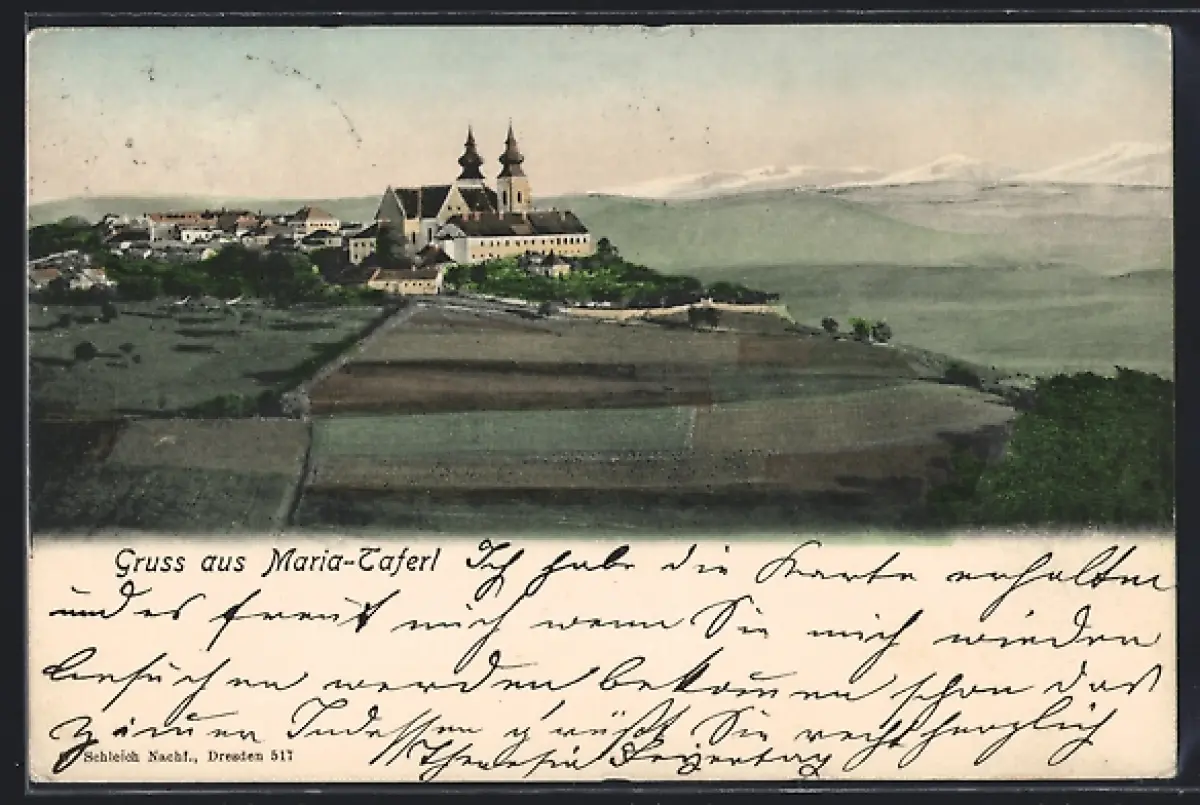 Gruss aus Maria-Taferl Ich habe die Karte erhalten
und es freut mich wenn Sie mich wieder
besuchen werden bekomen schon das
Zimer Indessen grüßt Sie recht herzlich
Schleich Nachf., Dresden 517 Theresia Feyertag